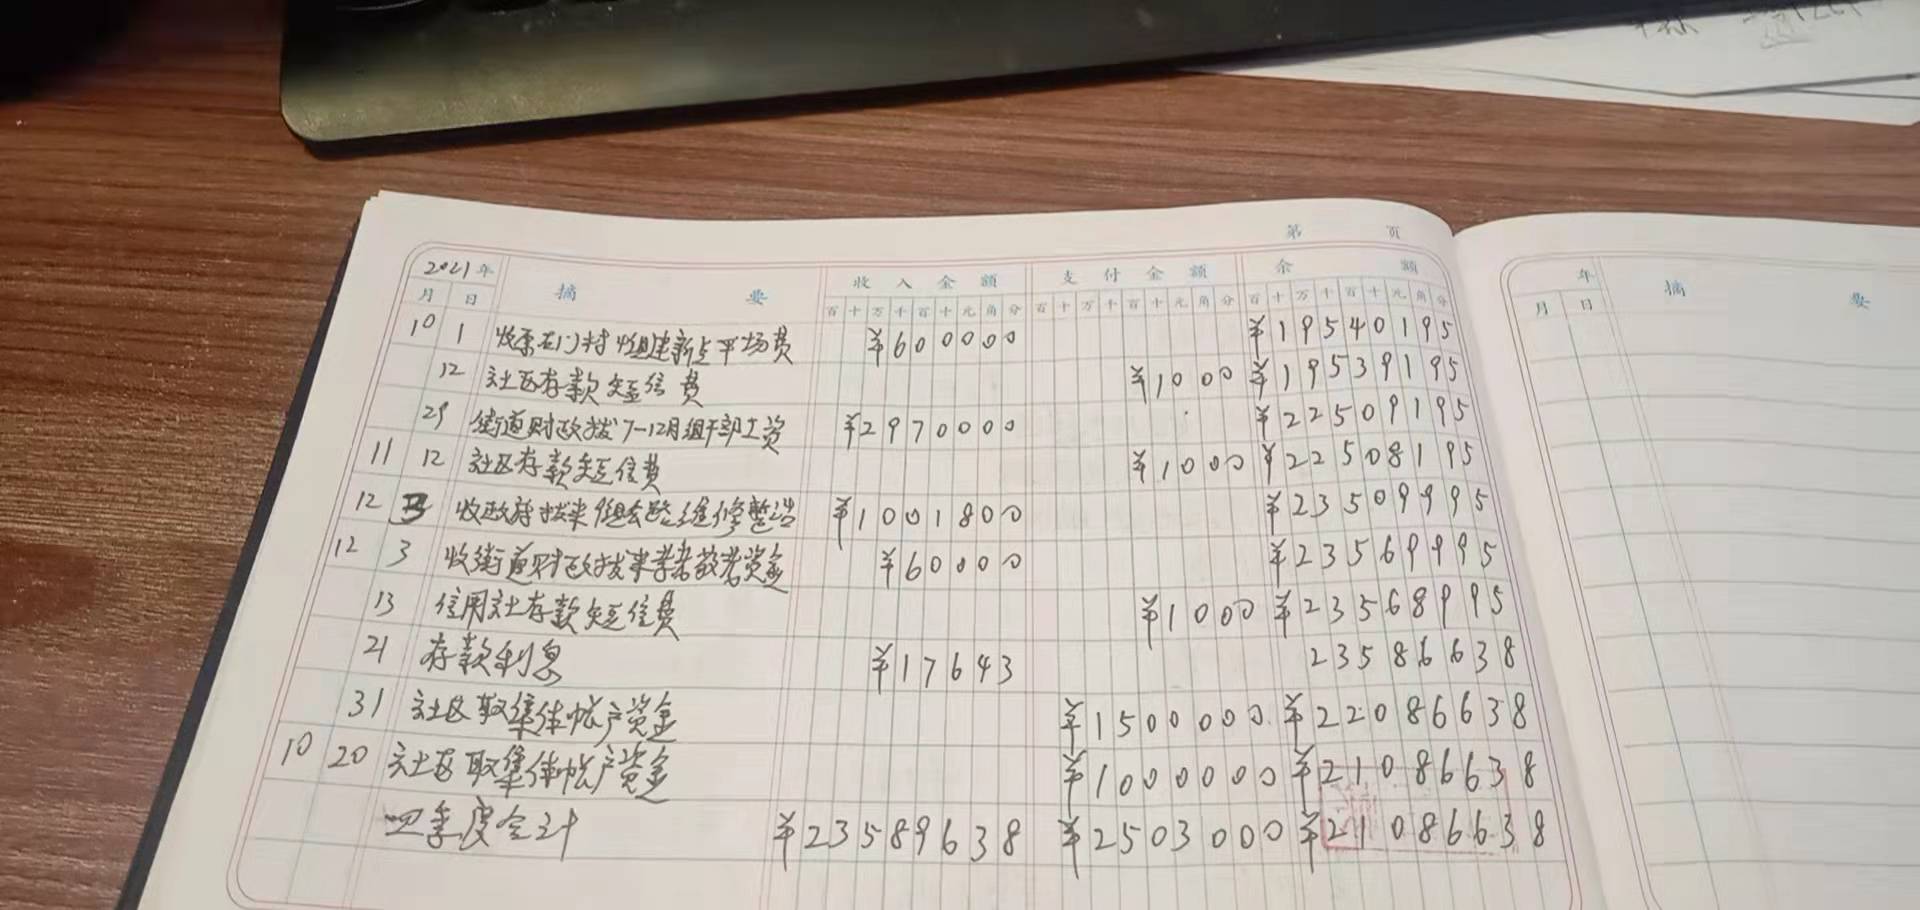 第 页
2021年 摘 要 收入金额 支付金额 余 额
月 日 百十万千百十元角分 百十万千百十元角分 百十万千百十元角分
10 1 平场费 ¥600000 ¥19540195
12 社区存款短信费 ¥1000 ¥19539195
29 街道财政拨7-12月组干部工资 ¥2970000 ¥22509195
11 12 社区存款短信费 ¥1000 ¥22508195
12 收政府拨来 组公路维修整治 ¥1001800 ¥23509995
12 3 收街道财政拨来孝老敬老资金 ¥60000 ¥23569995
13 信用社存款短信费 ¥1000 ¥23568995
21 存款利息 ¥17643 23586638
31 社区取集体帐户资金 ¥1500000 ¥22086638
10 20 社区取集体帐户资金 ¥1000000 ¥21086638
四季度合计 ¥23589638 ¥2503000 ¥21086638
年 摘 要
月 日